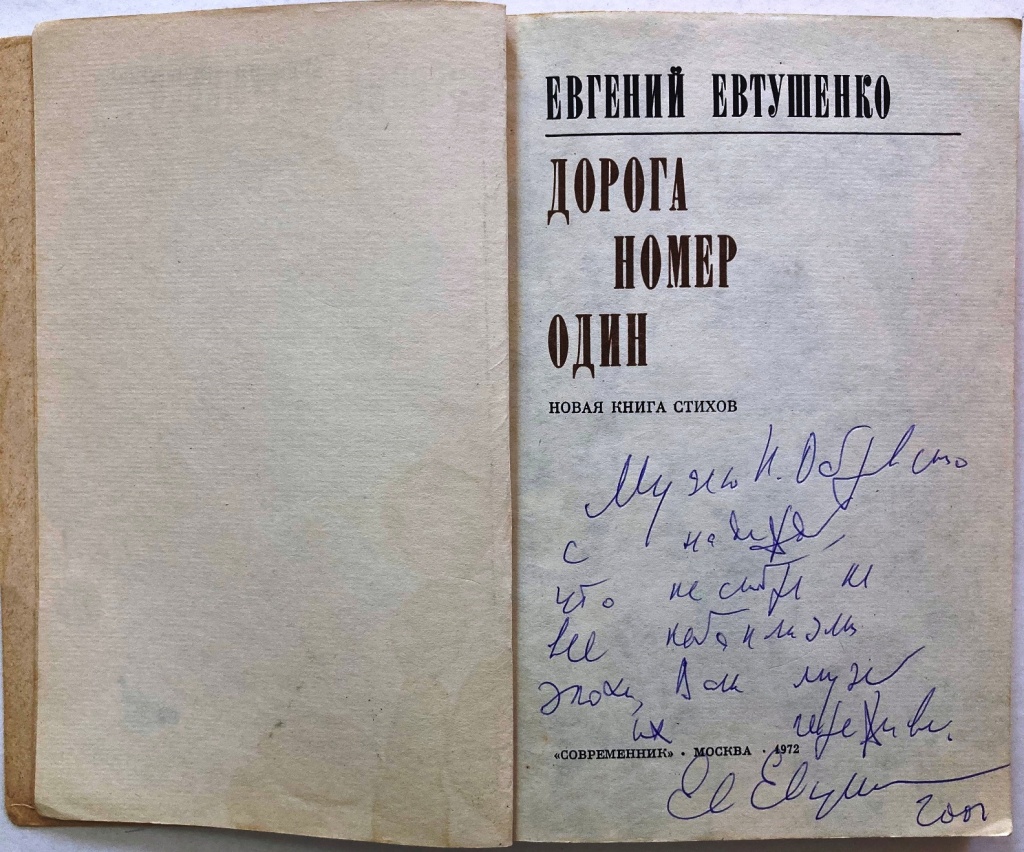 ЕВГЕНИЙ ЕВТУШЕНКО
ДОРОГА
НОМЕР
ОДИН
НОВАЯ КНИГА СТИХОВ
Музею Н.
с надеждой,
что несмотря на
все катаклизмы
эпохи, Ваш музей
их переживет.
«СОВРЕМЕННИК» · МОСКВА · 1972
Ев Евтушенко
2001